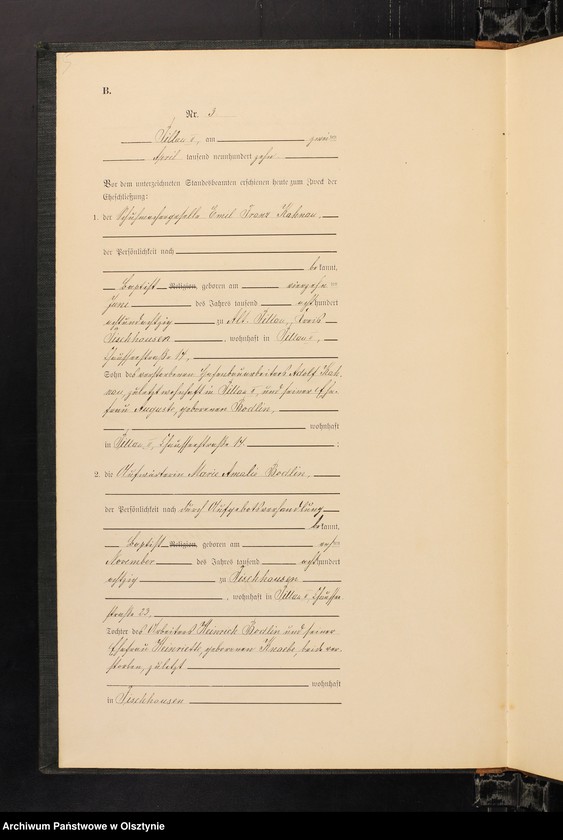 B.
Nr. 3
Pillau II, am zwei ten
April tausend neunhundert zehn
Vor dem unterzeichneten Standesbeamten erschienen heute zum Zweck der
Eheschließung:
1. der Schuhmachergeselle Emil Franz Kahnau,
der Persönlichkeit nach
be kannt,
Baptist Religion, geboren am vierzehn ten
Juni des Jahres tausend achthundert
achtundachtzig zu Alt Pillau, Kreis
Fischhausen, wohnhaft in Pillau II,
Chausseestraße 14,
Sohn des verstorbenen Hafenbauarbeiters Adolf Kah-
nau, zuletzt wohnhaft in Pillau II, und seiner Ehe-
frau Auguste, geborenen Bodlin,
wohnhaft
in Pillau II, Chausseestraße 14 ;
2. die Aufwärterin Marie Amalie Bodlin,
der Persönlichkeit nach durch Aufgebotsverhandlung
be kannt,
Baptist Religion, geboren am ten
November des Jahres tausend achthundert
achtzig zu Fischhausen
, wohnhaft in Pillau II, Chaussee-
straße 22.
Tochter des Arbeiters Heinrich Bodlin und seiner
Ehefrau Henriette, geborenen Knaebe, beide ver-
storben, zuletzt
wohnhaft
in Fischhausen
Archiwum Państwowe w Olsztynie